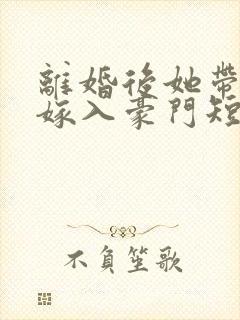 離婚後她帶
嫁入豪門短
不負笙歌